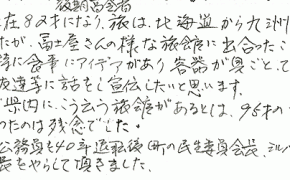 後期高齢者
在82才になり、旅は、北海道から九洲
たが、冨士屋さんの様な旅館に出合ったこ
特に食事にアイデアがあり容器が見ごとで
友達等に話をし宣伝したいと思います。
県内に、こう云う旅館があるとは、96才の
ったのは残念でした。
公務員を40年退転後町の民生委員会長、シルバ
長をやらして頂きました。